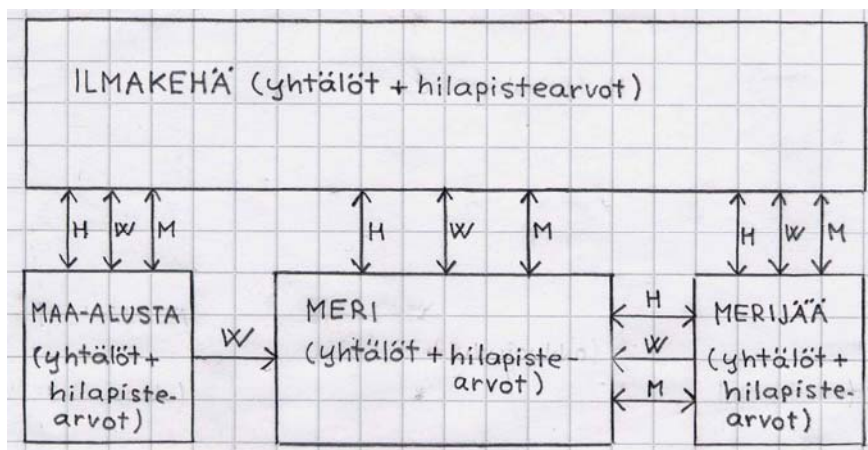 ILMAKEHÄ (yhtälöt + hilapistearvot)
H W M
H W M
H W M
MAA-ALUSTA
(yhtälöt +
hilapiste-
arvot)
W
MERI
(yhtälöt + hilapiste-
arvot)
H
W
M
MERIJÄÄ
(yhtälöt +
hilapiste-
arvot)